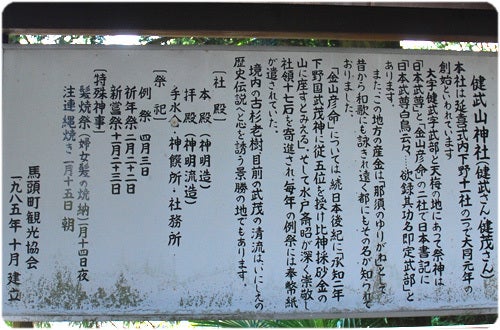 健武山神社(健武さん健茂さん)
本社は延喜式内下野十一社の一つで大同元年の
創始といわれています
大字健武字武部と天梅の地にあって祭神は
「日本武尊」と「金山彦命」の二社で日本書記に
日本武尊と白鳥云々…欲録其功名即定武部と
あります。
また、この地方の産金は「那須のゆりがね」として
昔から和歌にも詠まれ遠く都にもその名が知られて
おりました。
「金山彦命」については続日本後紀に「承知二年
下野国武茂神に従五位を授け比神採砂金の
山に座すとみえる」として水戸斎昭が深く崇敬し
社領十七石を寄進され、毎年の例祭には奉幣紙
が遣されていた。
境内の古杉老樹、目前の武茂の清流はいにしえの
歴史伝説へと心を誘う景勝の地でもあります。
〔社殿〕
本殿(神明造)
拝殿(神明流造)
手水舎・神饌所・社務所
〔祭祀〕
例祭 四月三日
祈年祭 二月二十二日
新嘗祭 十一月二十三日
〔特殊神事〕
髪焼祭(婦女髪の焼納)二月十四日夜
注連縄焼き一月十五日 朝
馬頭町観光協会
一九八五年十月建立